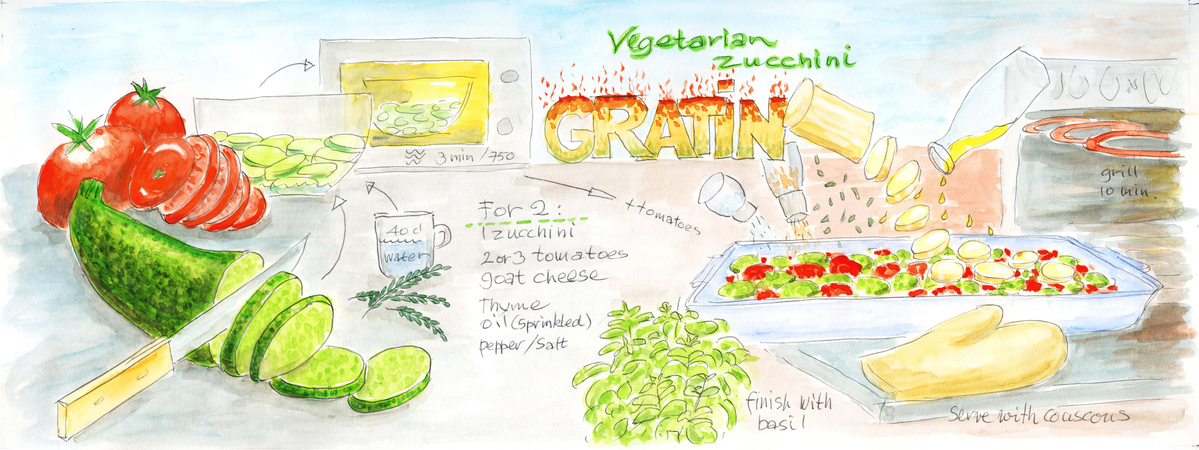 Vegetarian
zucchini
GRATIN
3 min / 750
40 cl
water
+ tomatoes
For 2:
1 zucchini
2 or 3 tomatoes
goat cheese
Thyme
oil (sprinkled)
pepper / Salt
grill
10 min.
finish with
basil
Serve with couscous